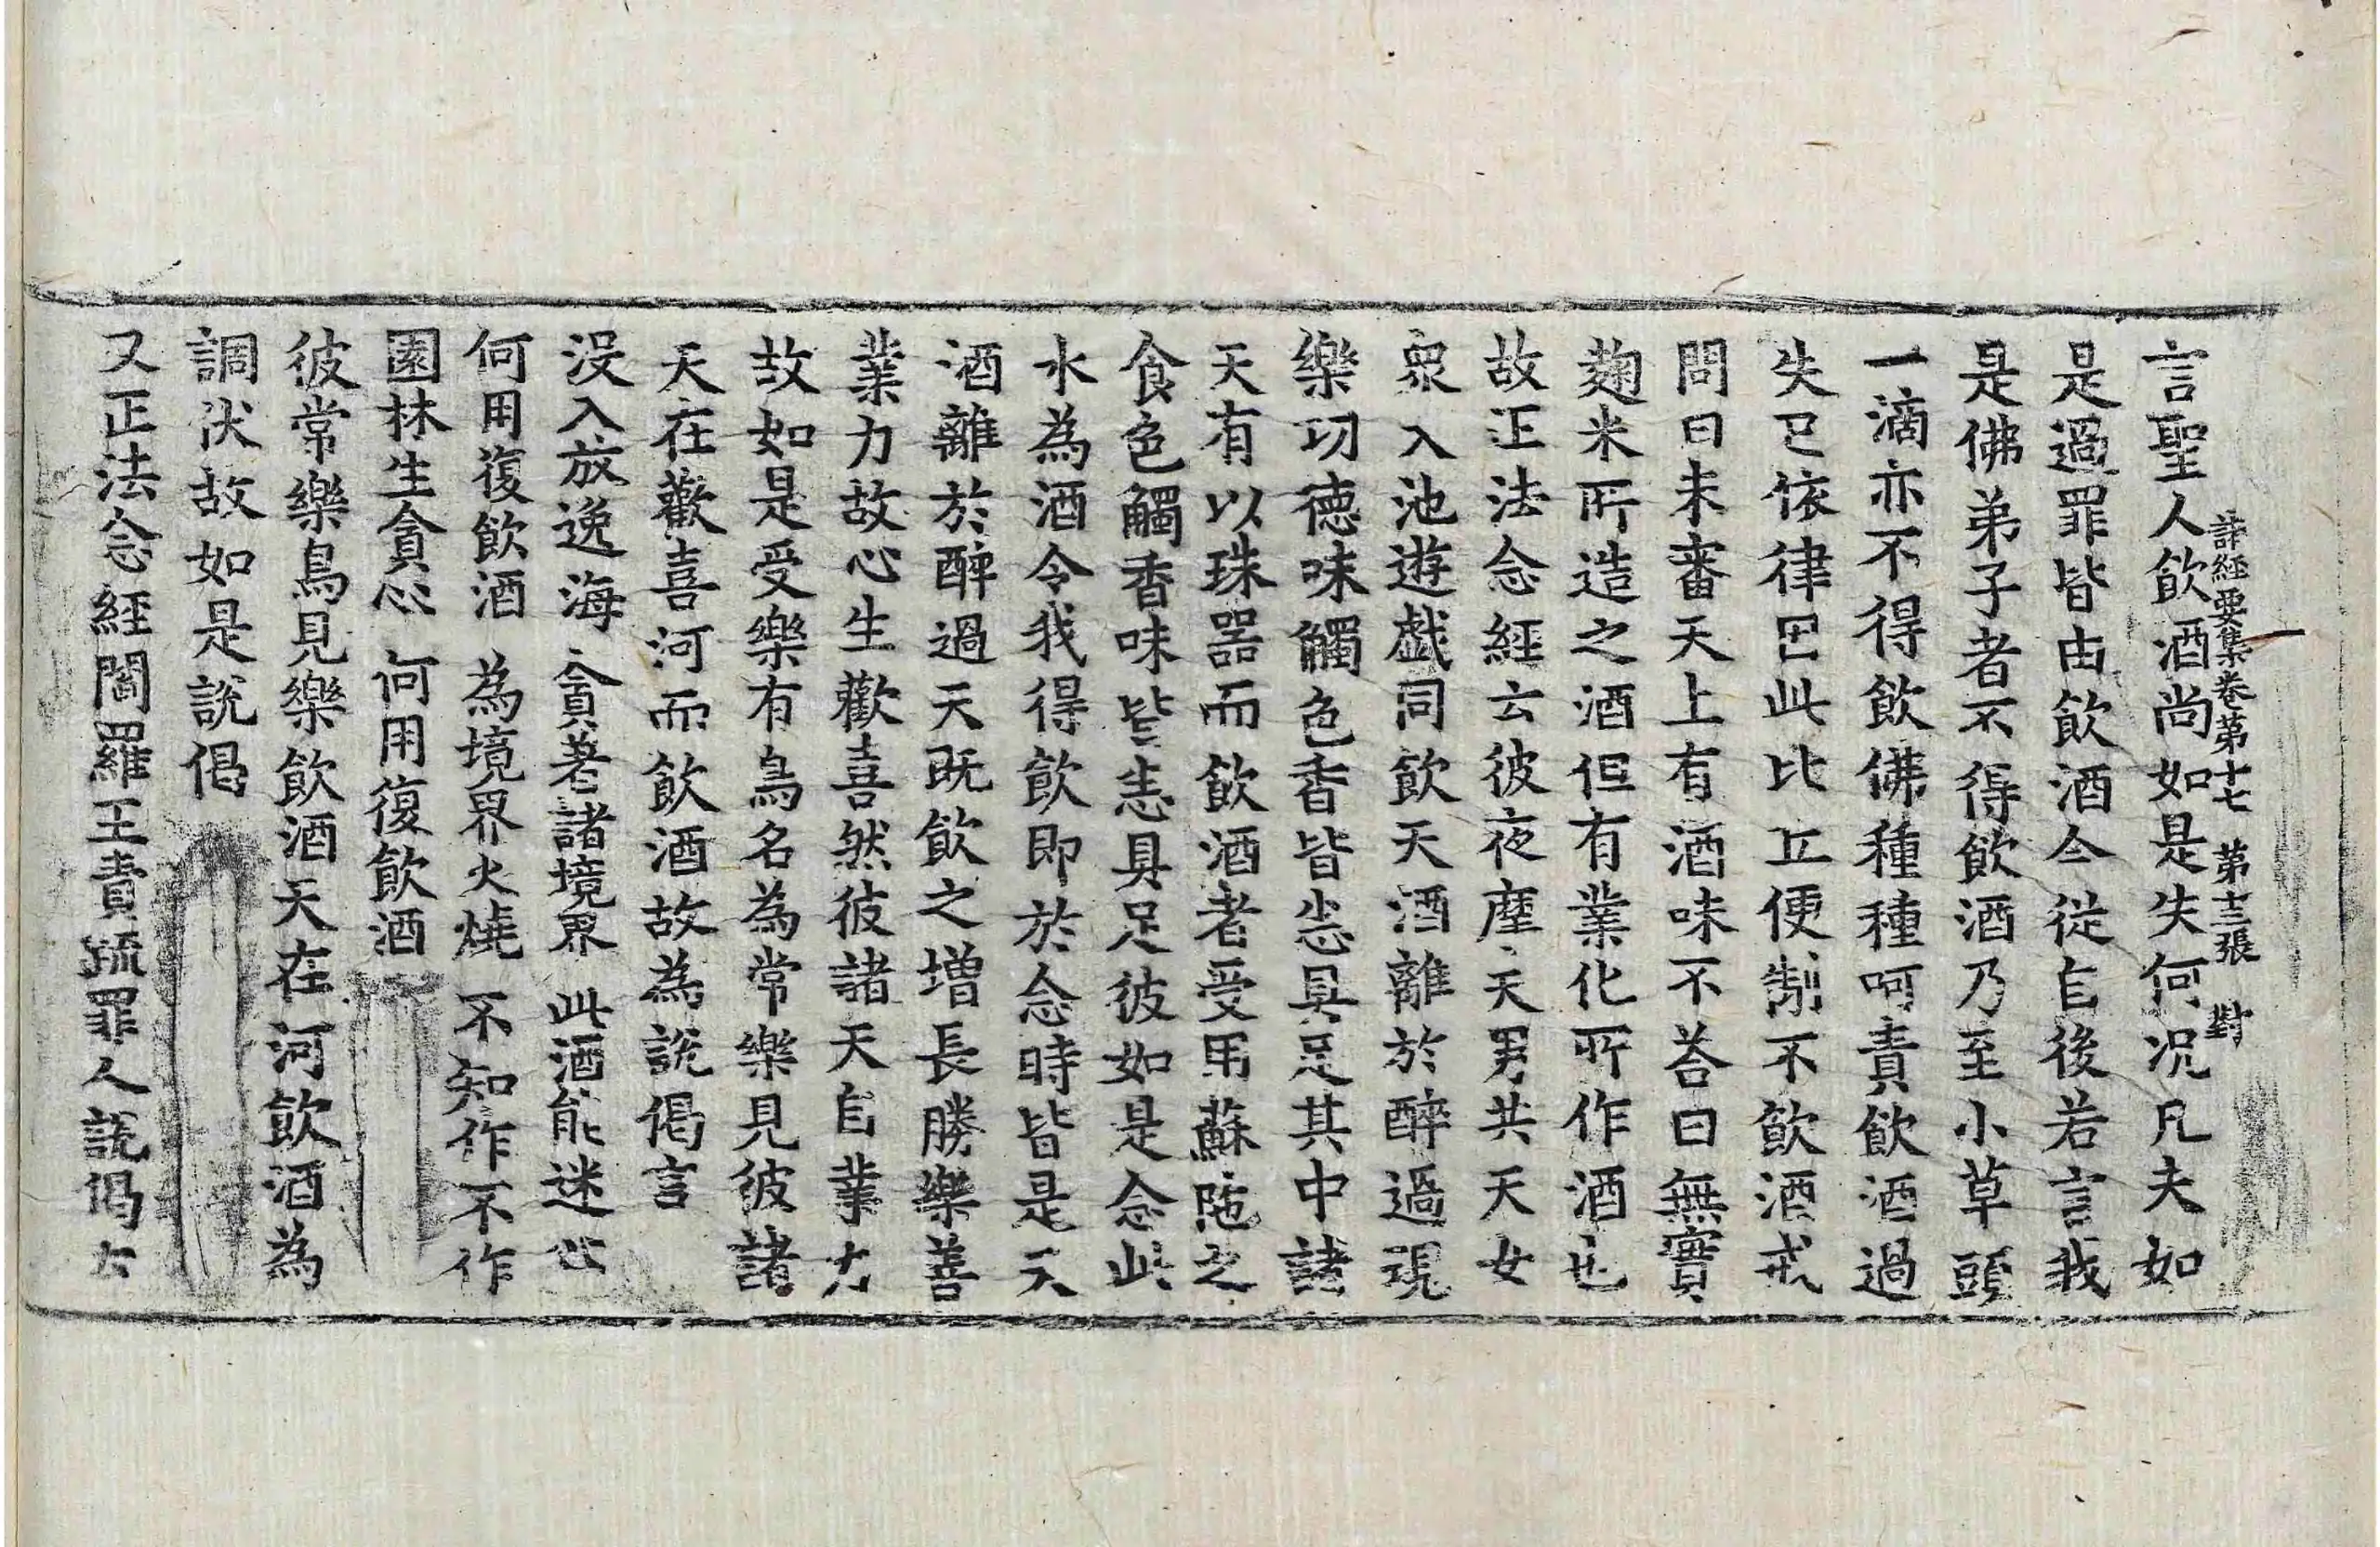 諸經要集卷第十七 第十三張 對
言聖人飲酒尚如是失何況凡夫如
是過罪皆由飲酒今從自後若言我
是佛弟子者不得飲酒乃至小草頭
一滴亦不得飲佛種種呵責飲酒過
失已依律因此比丘便制不飲酒戒
問曰未審天上有酒味不荅曰無實
麹米所造之酒但有業化所作酒也
故正法念經云彼夜摩天男共天女
衆入池遊戲同飲天酒離於醉過現
樂功德味觸色香皆悉具足其中諸
天有以珠器而飲酒者受用蘇陁之
食色觸香味皆悉具足彼如是念此
水為酒令我得飲即於念時皆是天
酒離於醉過天既飲之增長勝樂善
業力故心生歡喜然彼諸天自業力
故如是受樂有鳥名為常樂見彼諸
天在歡喜河而飲酒故為說偈言
沒入放逸海 貪著諸境界 此酒能迷心
何用復飲酒 為境界火燒 不知作不作
園林生貪心 何用復飲酒
彼常樂鳥見樂飲酒天在河飲酒為
調伏故如是說偈
又正法念經閻羅王責疏罪人說偈云